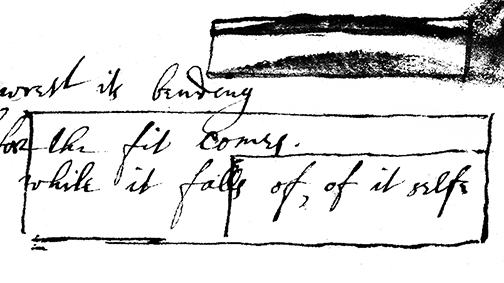 its bending
for the fit comes.
while it falls of, of it selfe